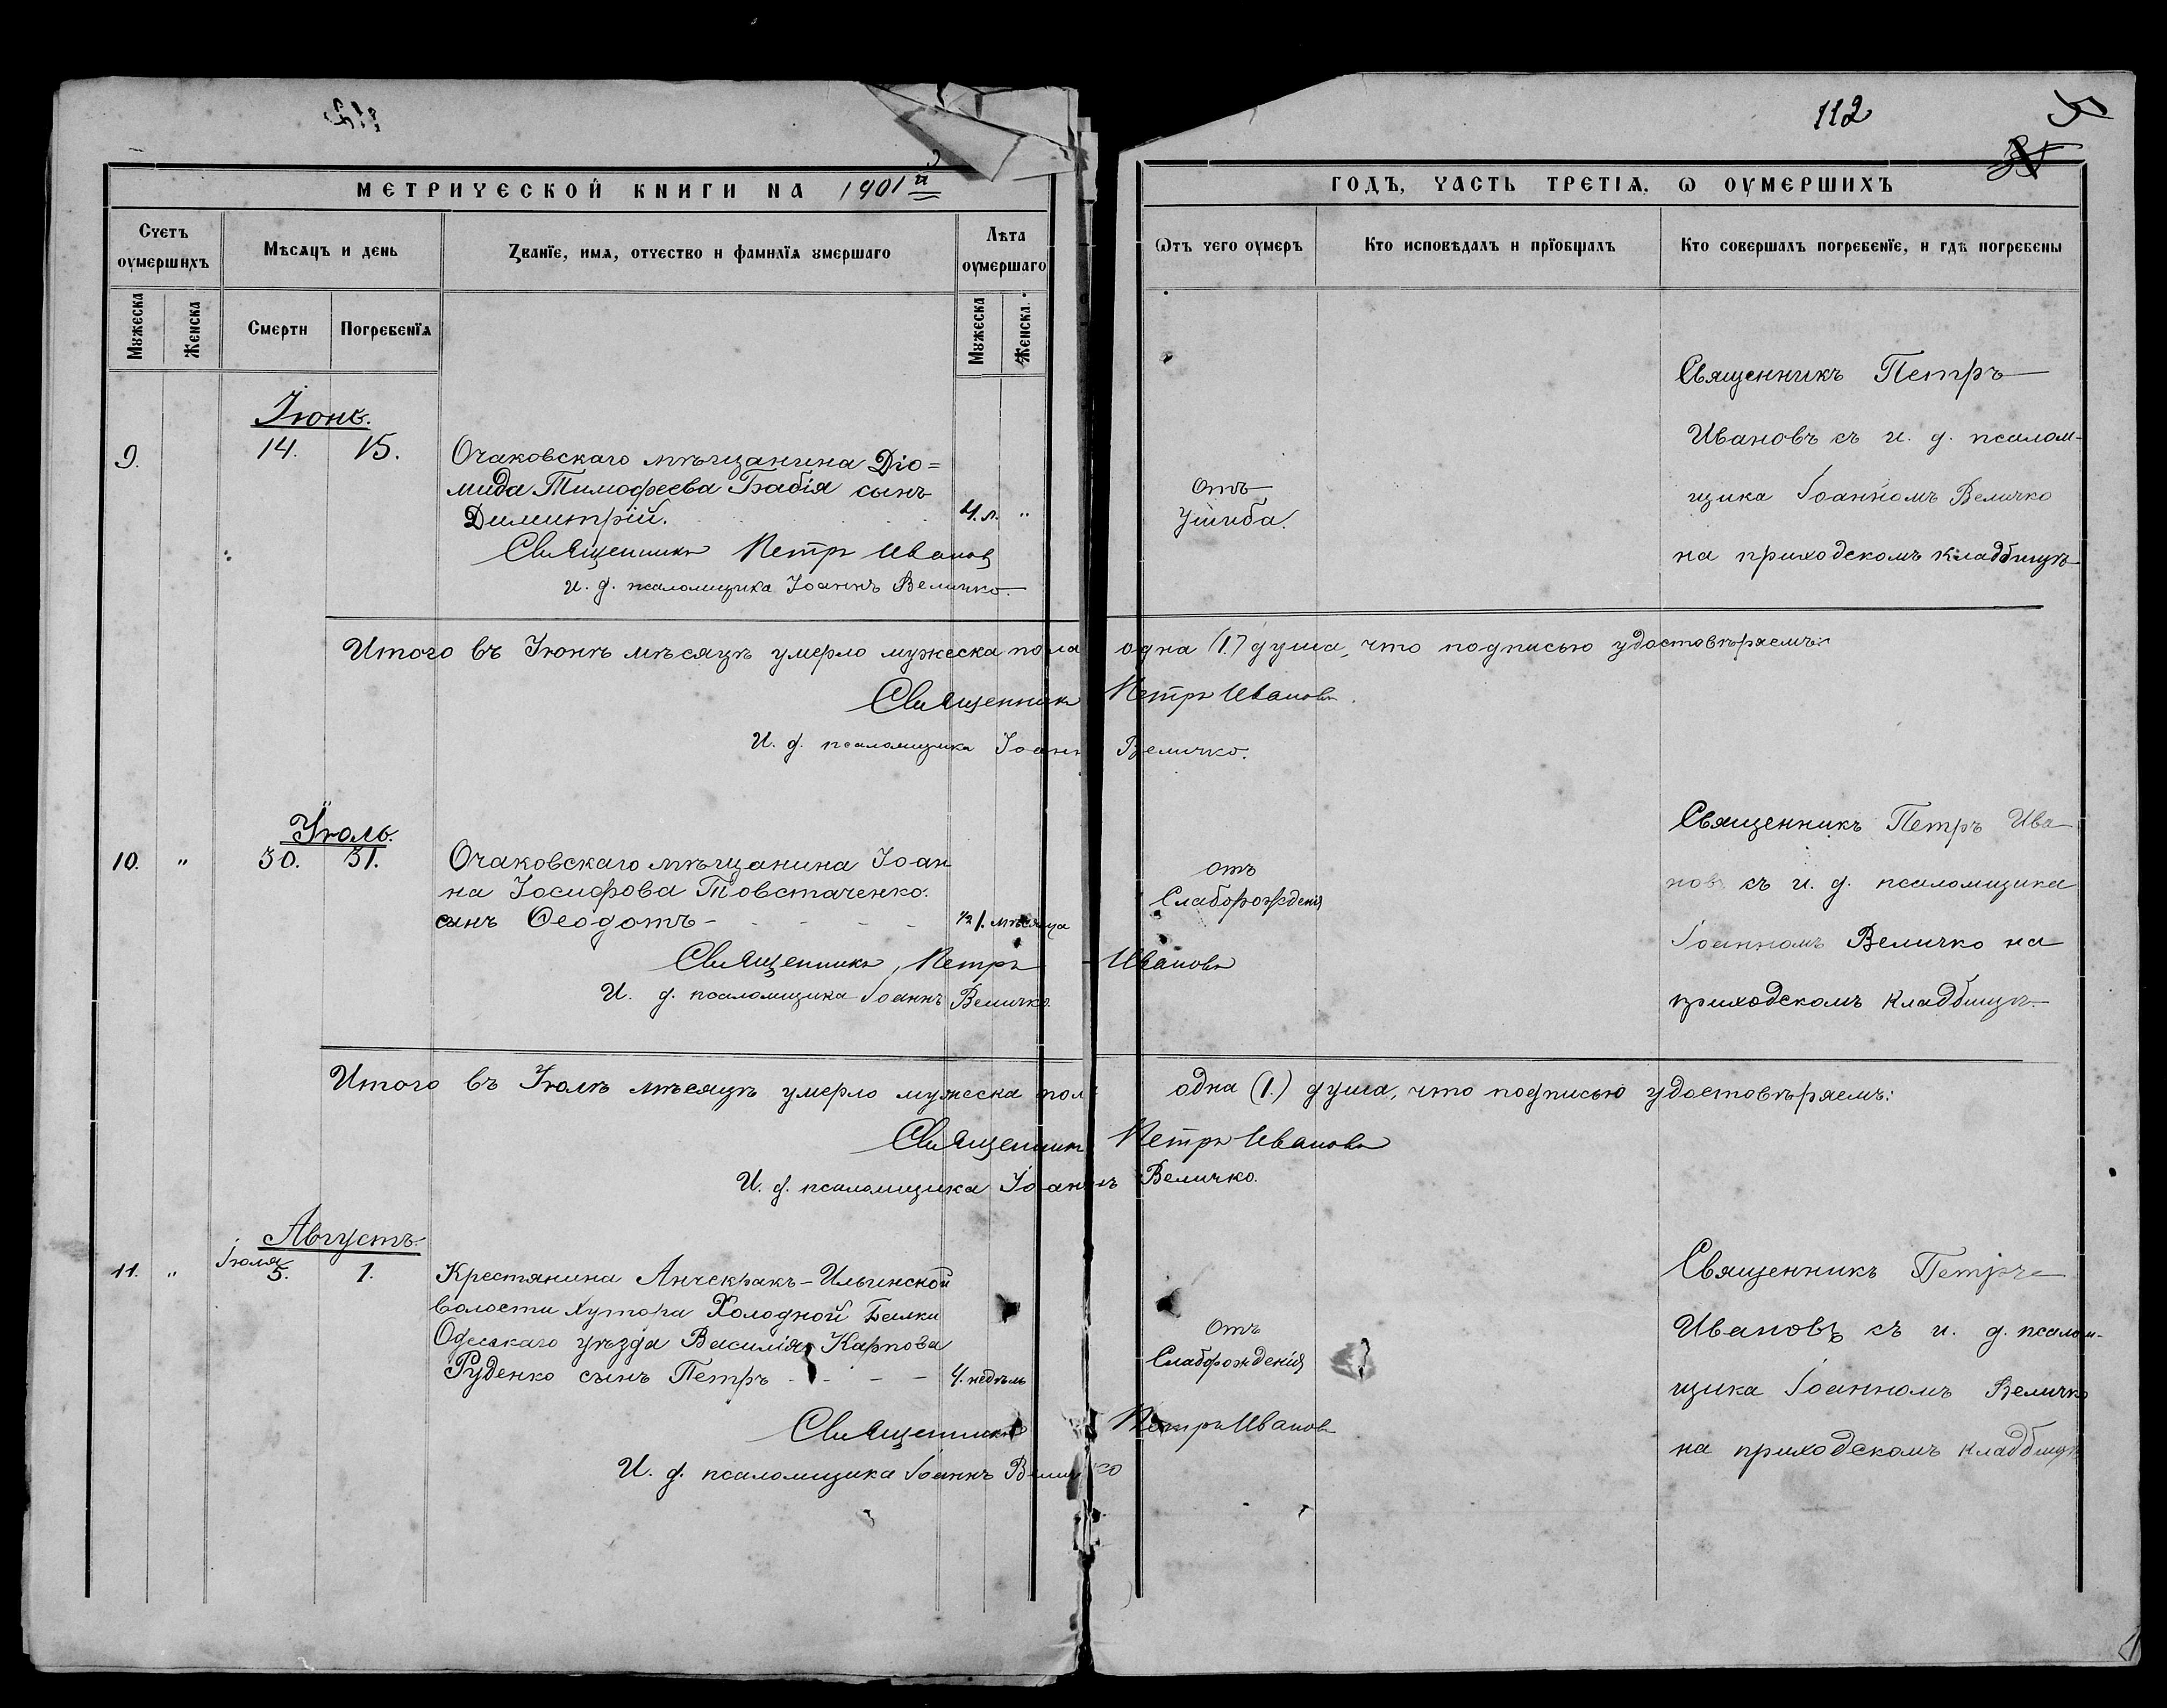 112
МЕТРИЧЕСКОЙ КНИГИ НА 1901й
ГОДЪ, ЧАСТЬ ТРЕТІЯ, Ѡ ОУМЕРШИХЪ
Счетъ оумершихъ
Мѣсяцъ и день
Званїе, имѧ, отчество и фамилїѧ ꙋмершаго
Лѣта оумершаго
Ѿтъ чего оумеръ
Кто исповѣдалъ и прїобщалъ
Кто совершалъ погребенїе, и гдѣ погребены
Мꙋжеска
Женска
Смерти
Погребенїѧ
Мꙋжеска
Женска.
Іюнь.
9.
14.
15.
Очаковскаго мѣщанина Діо=
мида Тимофеева Бабія сынъ
Димитрій.
4. л. "
Священникъ Петръ Иванов
и. д. псаломщика Іоаннъ Величко.
отъ
Ушиба.
Священникъ Петръ
Ивановъ съ и. д. псалом-
щика Іоанномъ Величко
на приходскомъ кладбищѣ
Итого въ Іюнѣ мѣсяцѣ умерло мужеска пола одна (1.) душа, что подписью удостовѣряемъ:
Священникъ Петръ Ивановъ
И. д. псаломщика Іоаннъ Величко.
Іюль.
10. "
30.
31.
Очаковскаго мѣщанина Іоан
на Іосифова Товстаченко.
сынъ Ѳеодотъ
1/2 1. мѣсяца
Священникъ Петръ Ивановъ
И. д. псаломщика Іоаннъ Величко
отъ
Слаборожденія
Священникъ Петръ Ива
новъ съ и. д. псаломщика
Іоанномъ Величко на
приходскомъ кладбищѣ.
Итого въ Іюлѣ мѣсяцѣ умерло мужеска пол одна (1.) душа, что подписью удостовѣряемъ:
Священник Петръ Ивановъ
И. д. псаломщика Іоаннъ Величко.
Августъ.
11. "
Іюля
5.
1.
Крестянина Анчекракъ-Ильинской
волости хутора Холодной Балки
Одесскаго уѣзда Василія Карпова
Руденко сынъ Петръ
4. недѣль
Священникъ Петръ Иванов
И. д. псаломщика Іоаннъ Величко
Отъ
Слаборожденія
Священникъ Петръ
Ивановъ съ и. д. псалом-
щика Іоанномъ Величко
на приходскомъ кладбищѣ